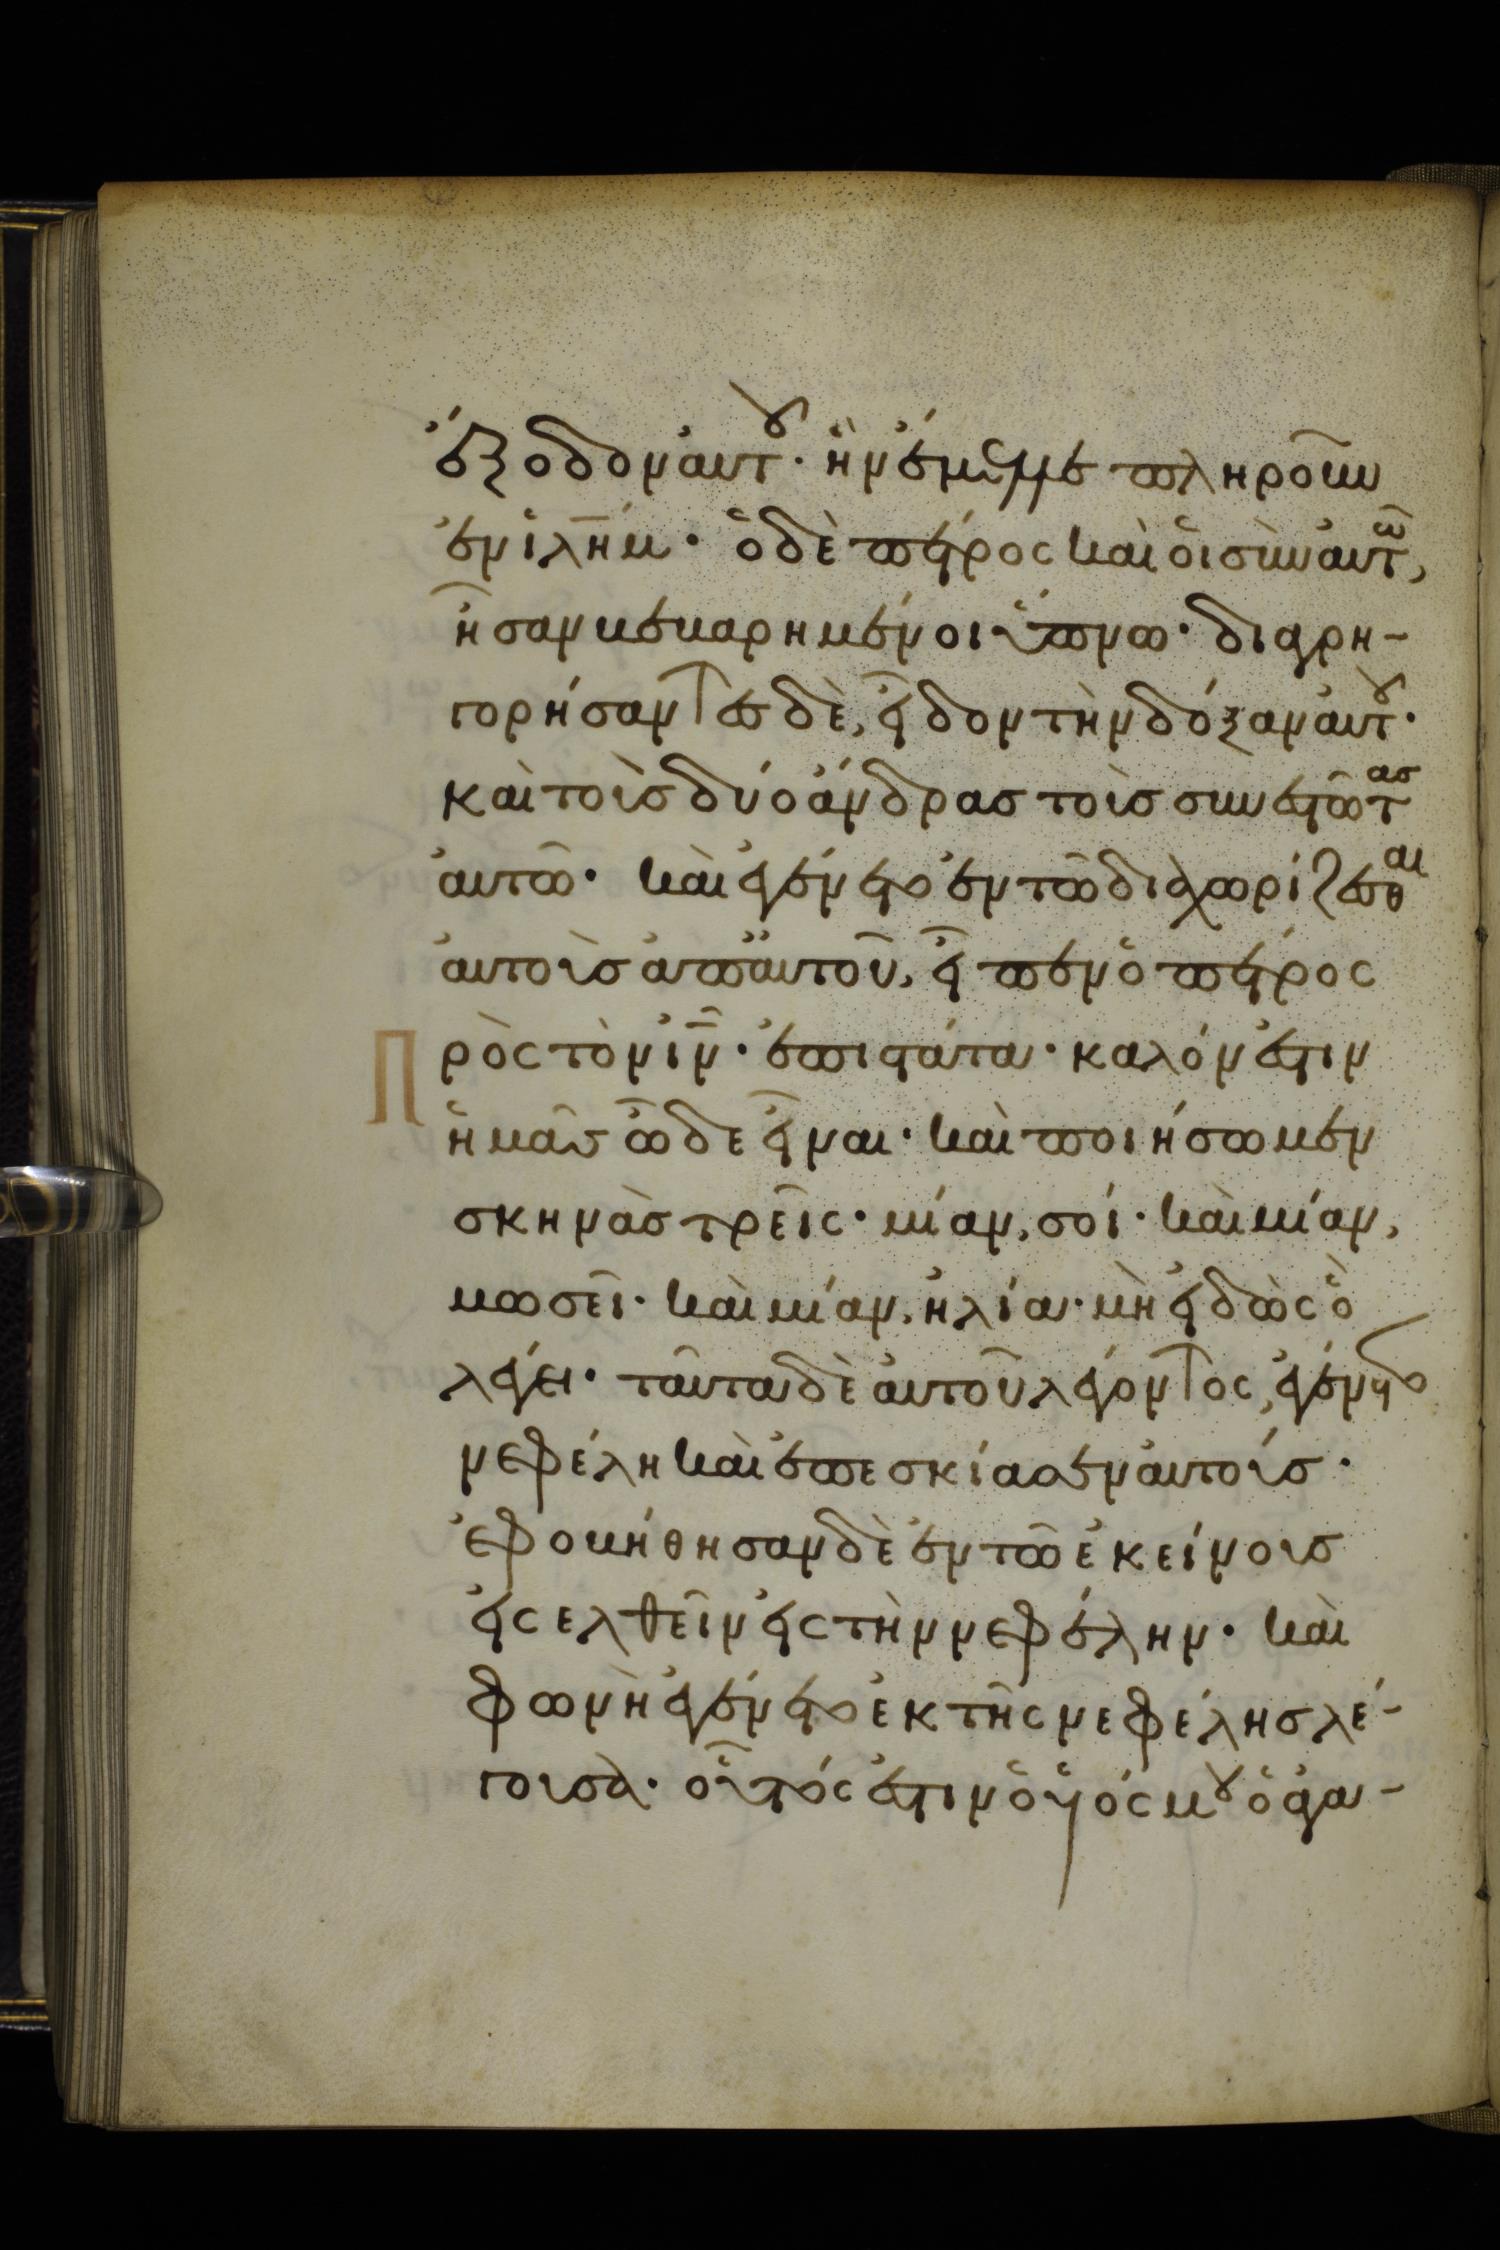 ἔξοδον αὐτοῦ· ἣν ἔμελλε πληροῦν
ἐν ἰλῆμ· ὁ δὲ πέτρος καὶ οἱ σὺν αὐτῶ,
ἦσαν βεβαρημένοι ὕπνω· διαγρη-
γορήσαντες δὲ, εἶδον τὴν δόξαν αὐτοῦ·
καὶ τοὺς δύο ἄνδρας τοὺς συνεστῶτας
αὐτῶ· καὶ ἐγένετο ἐν τῶ διαχωρίζεσθαι
αὐτοὺς ἀπ' αὐτοῦ, εἶπεν ὁ πέτρος
Πρὸς τὸν ἰν· ἐπιστάτα· καλόν ἐστιν
ἡμᾶς ὧδε εἶναι· καὶ ποιήσωμεν
σκηνὰς τρεῖς· μίαν, σοί· καὶ μίαν,
μωσεῖ· καὶ μίαν, ἠλία· μὴ εἰδὼς ὃ
λέγει· ταῦτα δὲ αὐτοῦ λέγοντος, ἐγένετο
νεφέλη καὶ ἐπεσκίασεν αὐτούς·
ἐφοβήθησαν δὲ ἐν τῶ ἐκείνους
εἰσελθεῖν εἰς τὴν νεφέλην· καὶ
φωνὴ ἐγένετο ἐκ τῆς νεφέλης λέ-
γουσα· οὗτός ἐστιν ὁ υἱός μου ὁ ἀγα-